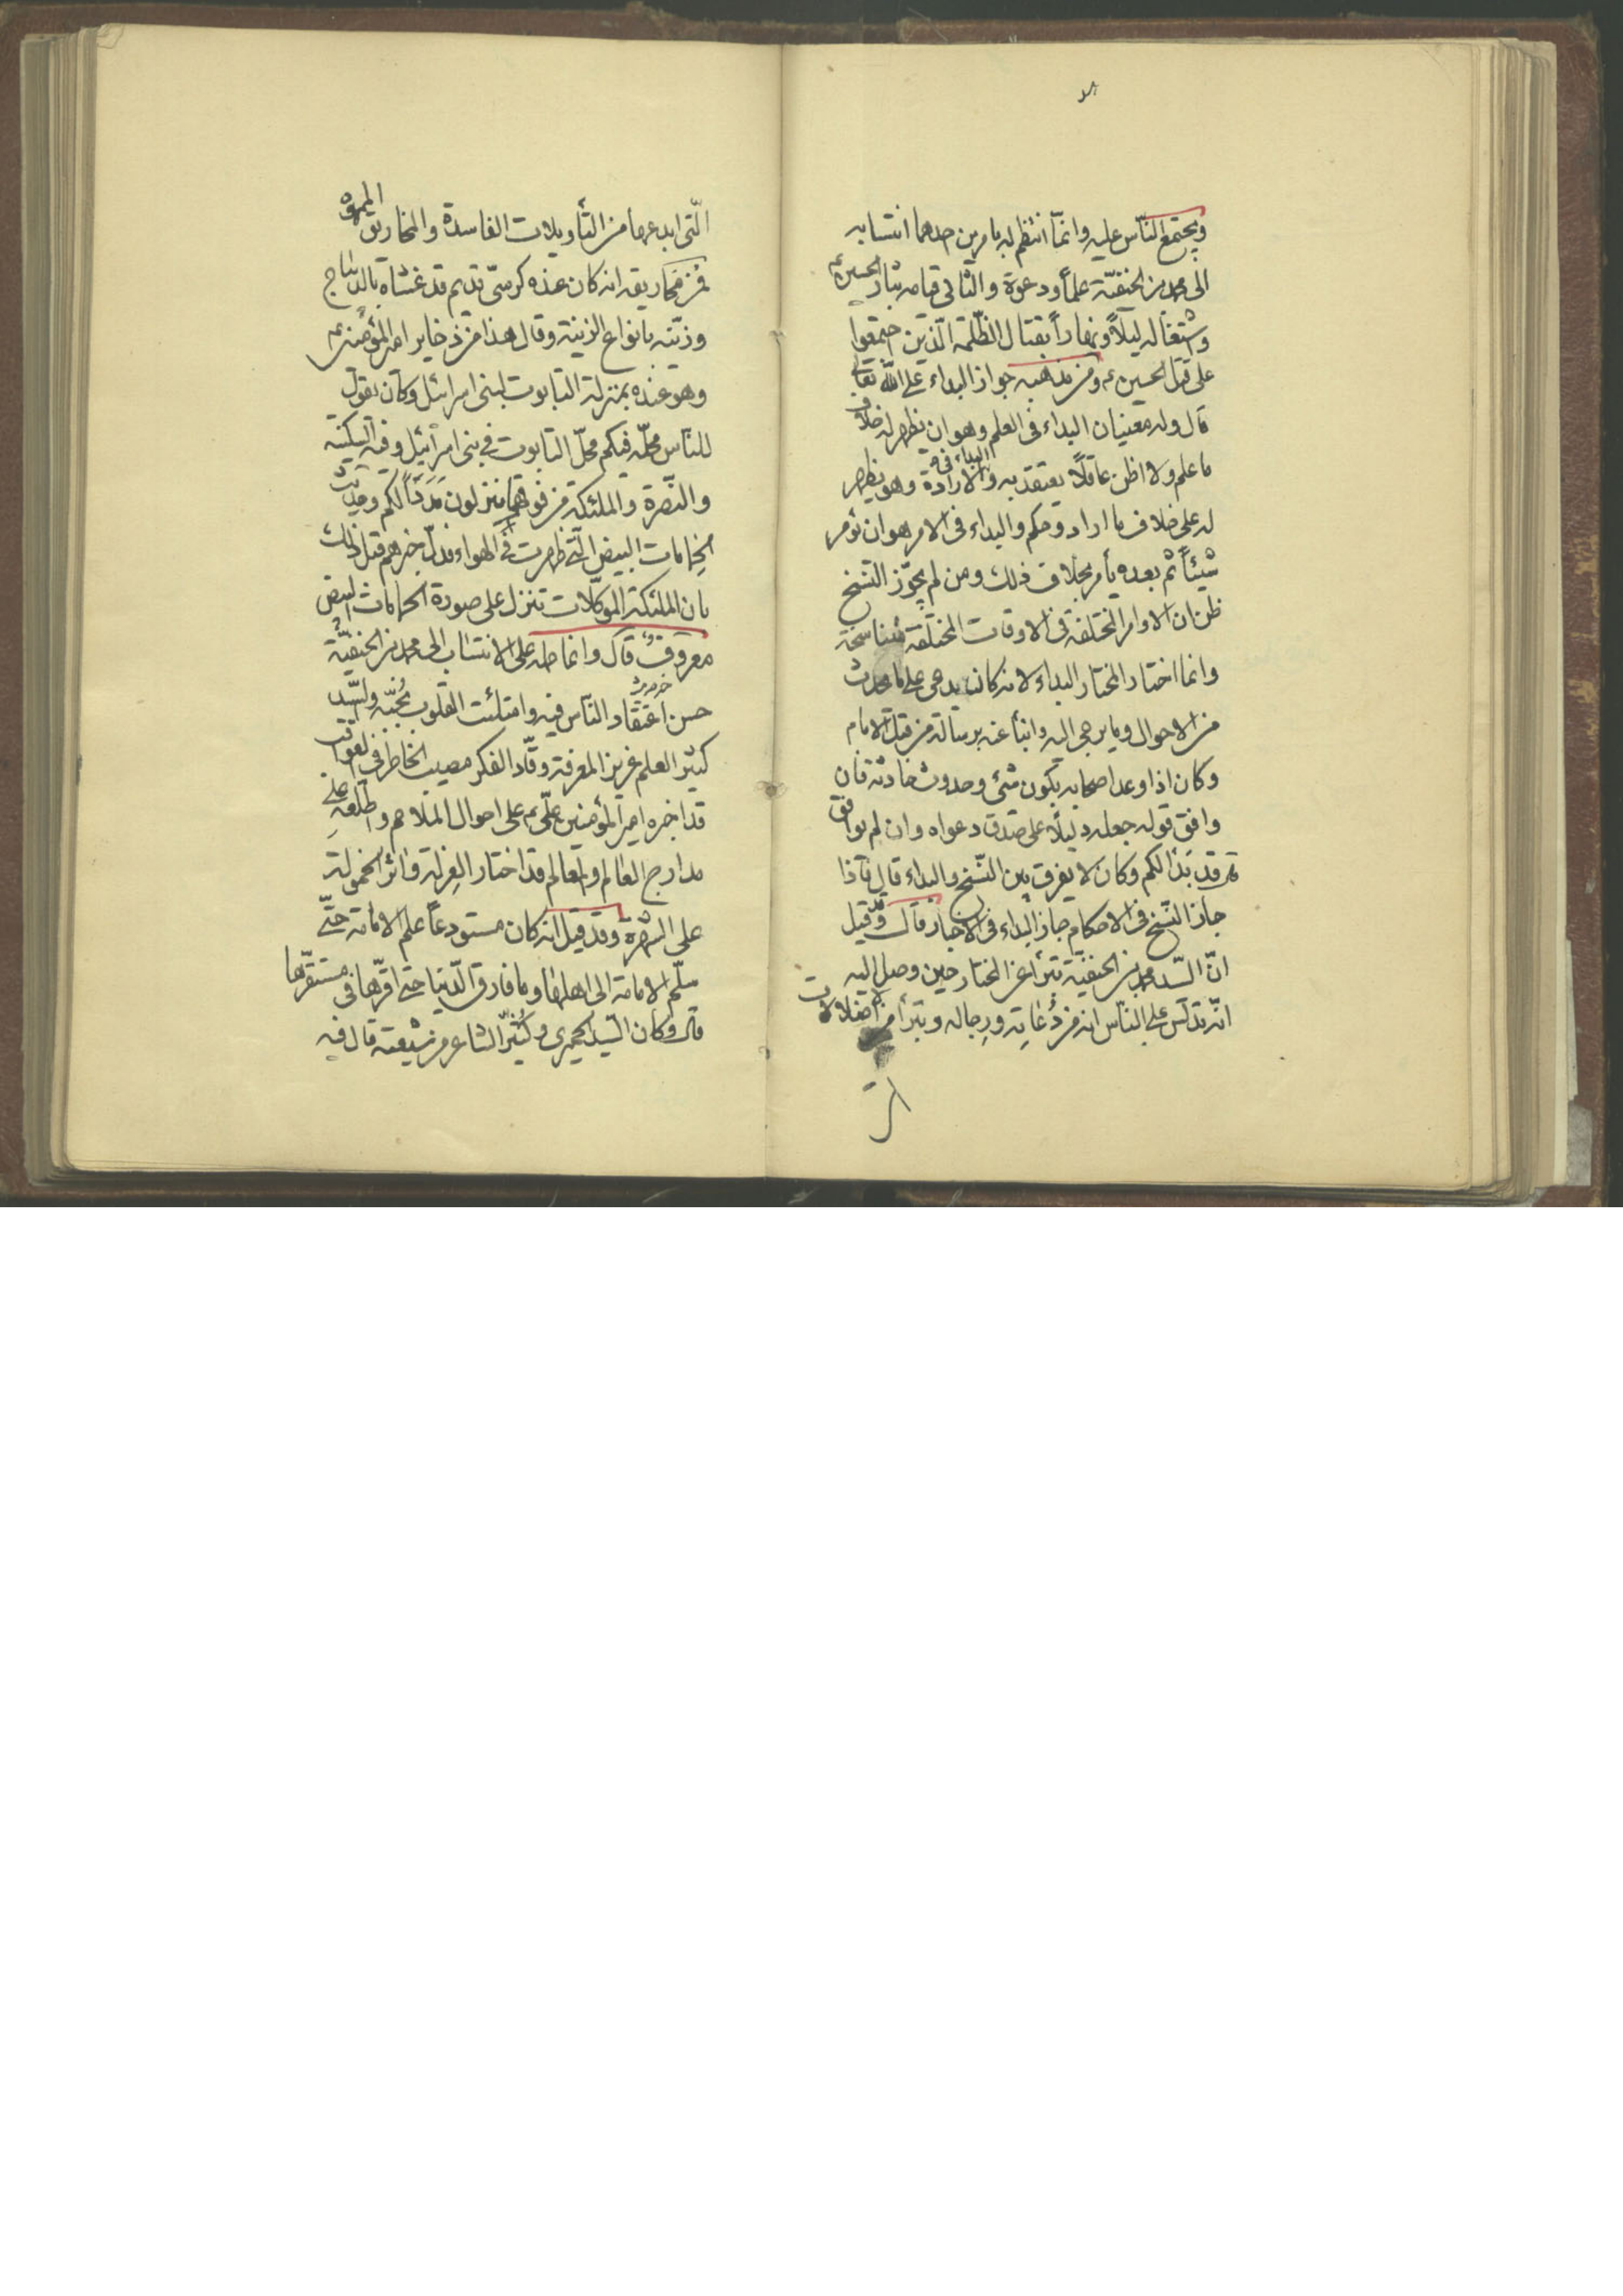 ويجتمع الناس عليه وانما انتظم له بامرين احدهما انتسابه
الى محمد بن الحنفية علماً ودعوة والثانى قيامه بثار الحسين ع
واشتغاله ليلاً ونهاراً بقتال الظلمة الذين اجتمعوا
على قتل الحسين ع ومن مذهبه جواز البداء على الله تعالى
قال وله معنيان البداء فى العلم وهو ان يظهر له خلاف
ما علم ولا اظن عاقلاً يعتقد به والبداء فى الارادة وهو يظهر
له على خلاف ما اراد وحكم والبداء فى الامر هو ان يؤمر
شيئاً ثم بعده يأمر بخلاف ذلك ومن لم يجوّز النسخ
ظن ان الاوامر المختلفة فى الاوقات المختلفة متناسخة
وانما اختار المختار البداء لانه كان يدعى علم ما يحدث
من الاحوال وما يوحى اليه وانبأ عنه برسالة من قبل الامام
وكان اذا وعد اصحابه بكون شئ وحدوث حادثة فان
وافق قوله جعله دليلاً على صدق دعواه وان لم يوافق
قد بدا لكم وكان لا يفرق بين النسخ والبداء قال فاذا
جاز النسخ فى الاحكام جاز البداء فى الاخبار قال وقيل
انّ السيّد محمد بن الحنفية تبرأ عن المختار حين وصل اليه
انّه تدلس على الناس انه من دُعاته ورجاله وتبرأ من اضلالات
التى
التى ابدعها من التأويلات الفاسدة والمخاريق المموهة
فمن مخاريقه انه كان عنده كرسى قديم قد غشاه بالديباج
وزيّنه بانواع الزينة وقال هذا من ذخاير امير المؤمنين ع
وهو عنده بمنزلة التابوت لبنى اسرائيل وكان يقول
للناس محلّه فيكم محلّ التابوت فى بنى اسرائيل وفيه السكينة
والنّصرة والملئكة من فوقهم ينزلون مَدَداً لكم وحديث
الحمامات البيض التى ظهرت فى الهواء قد اخبرهم قبل ذلك
بان الملئكة الموكلات تنزل على صورة الحمامات البيض
معروف قال وانما حمله على الانتساب الى محمد بن الحنفيّة
حسن اعتقاد الناس فيه وامتلئت القلوب بحُبّه والسّيد
كثير العلم غزير المعرفة وقّاد الفكر مصيب الخاطر فى العواقب
قد اخبره امير المؤمنين علىّ ع على احوال الملاحم واطلعه على
مدارج العالم والمعالم قد اختار العزلة فاثر الخمولة
على الشهرة وقد قيل انه كان مستودعاً علم الامامة حتى
سلّم الامامة الى اهلها وما فارق الدّنيا حتى اقرّها فى مستقرّها
قال وكان السيّد الحميرى وكُثيّر الشاعر من شيعته قال فيه